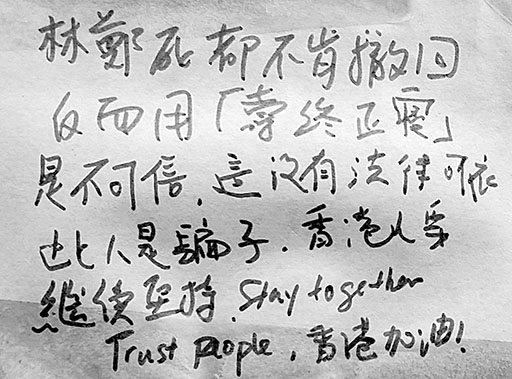 林鄭死都不肯撤回
反而用「壽終正寢」
是不可信，這没有法律可依
此人是騙子．香港人要
繼續堅持．Stay together
Trust people，香港加油！